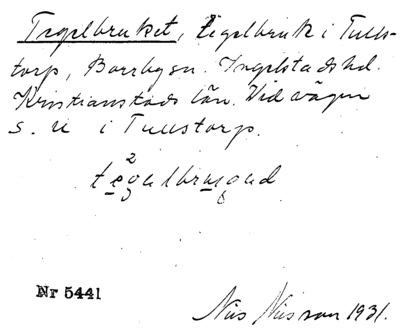 Tegelbruket, tegelbruk i Tulls-
torp, Borrbysn. Ingelstads hd.
Kristianstads län. Vid vägen
s. u i Tullstorp.
Nr 5441
Nils Nilsson 1931.